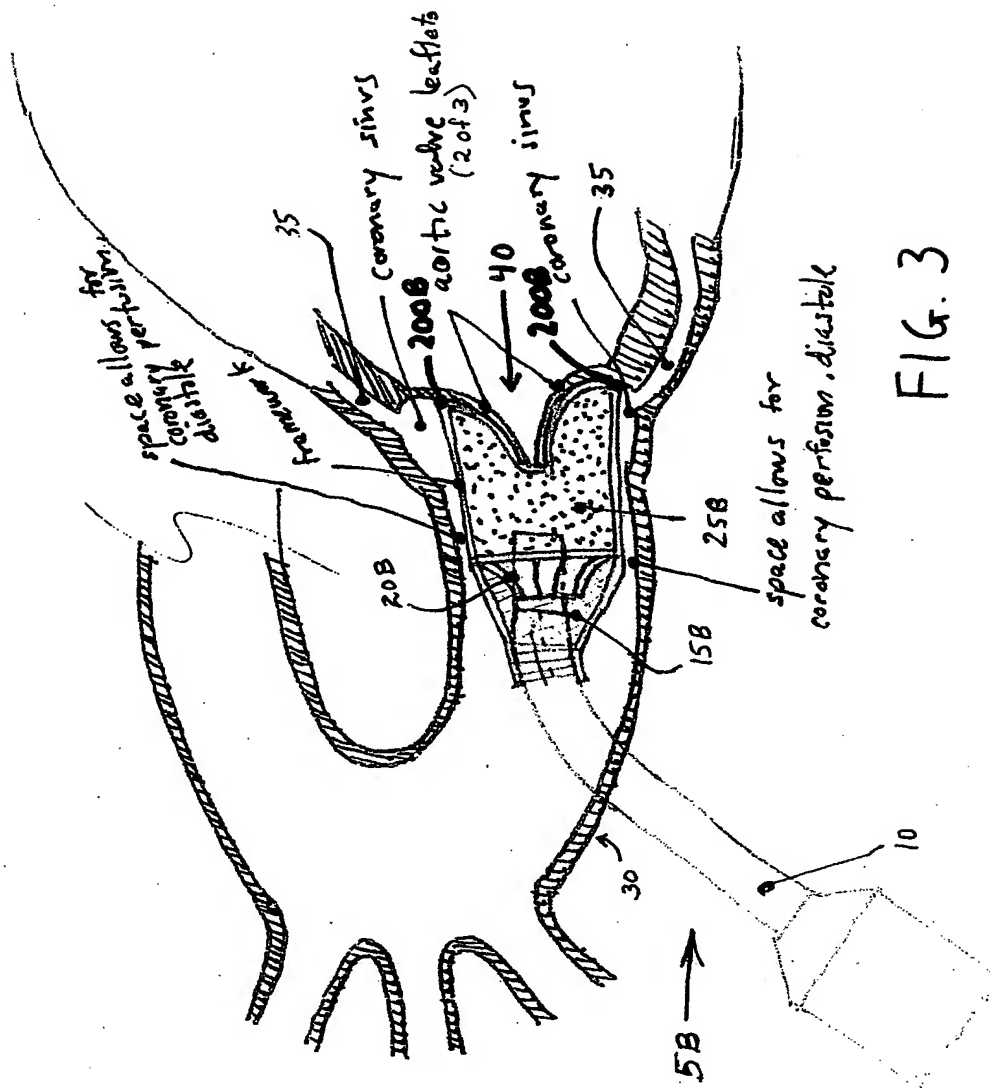 space allows for
coronary perfusion,
diastole
framework
35
coronary sinus
200B
aortic valve leaflets
(2 of 3)
40
200B
coronary sinus
35
20B
25B
15B
space allows for
coronary perfusion, diastole
30
10
5B
FIG. 3